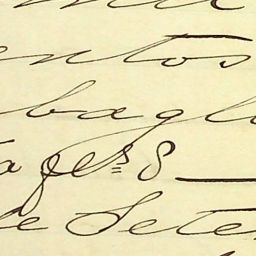 entos
bagl
a fls 8
de Sete